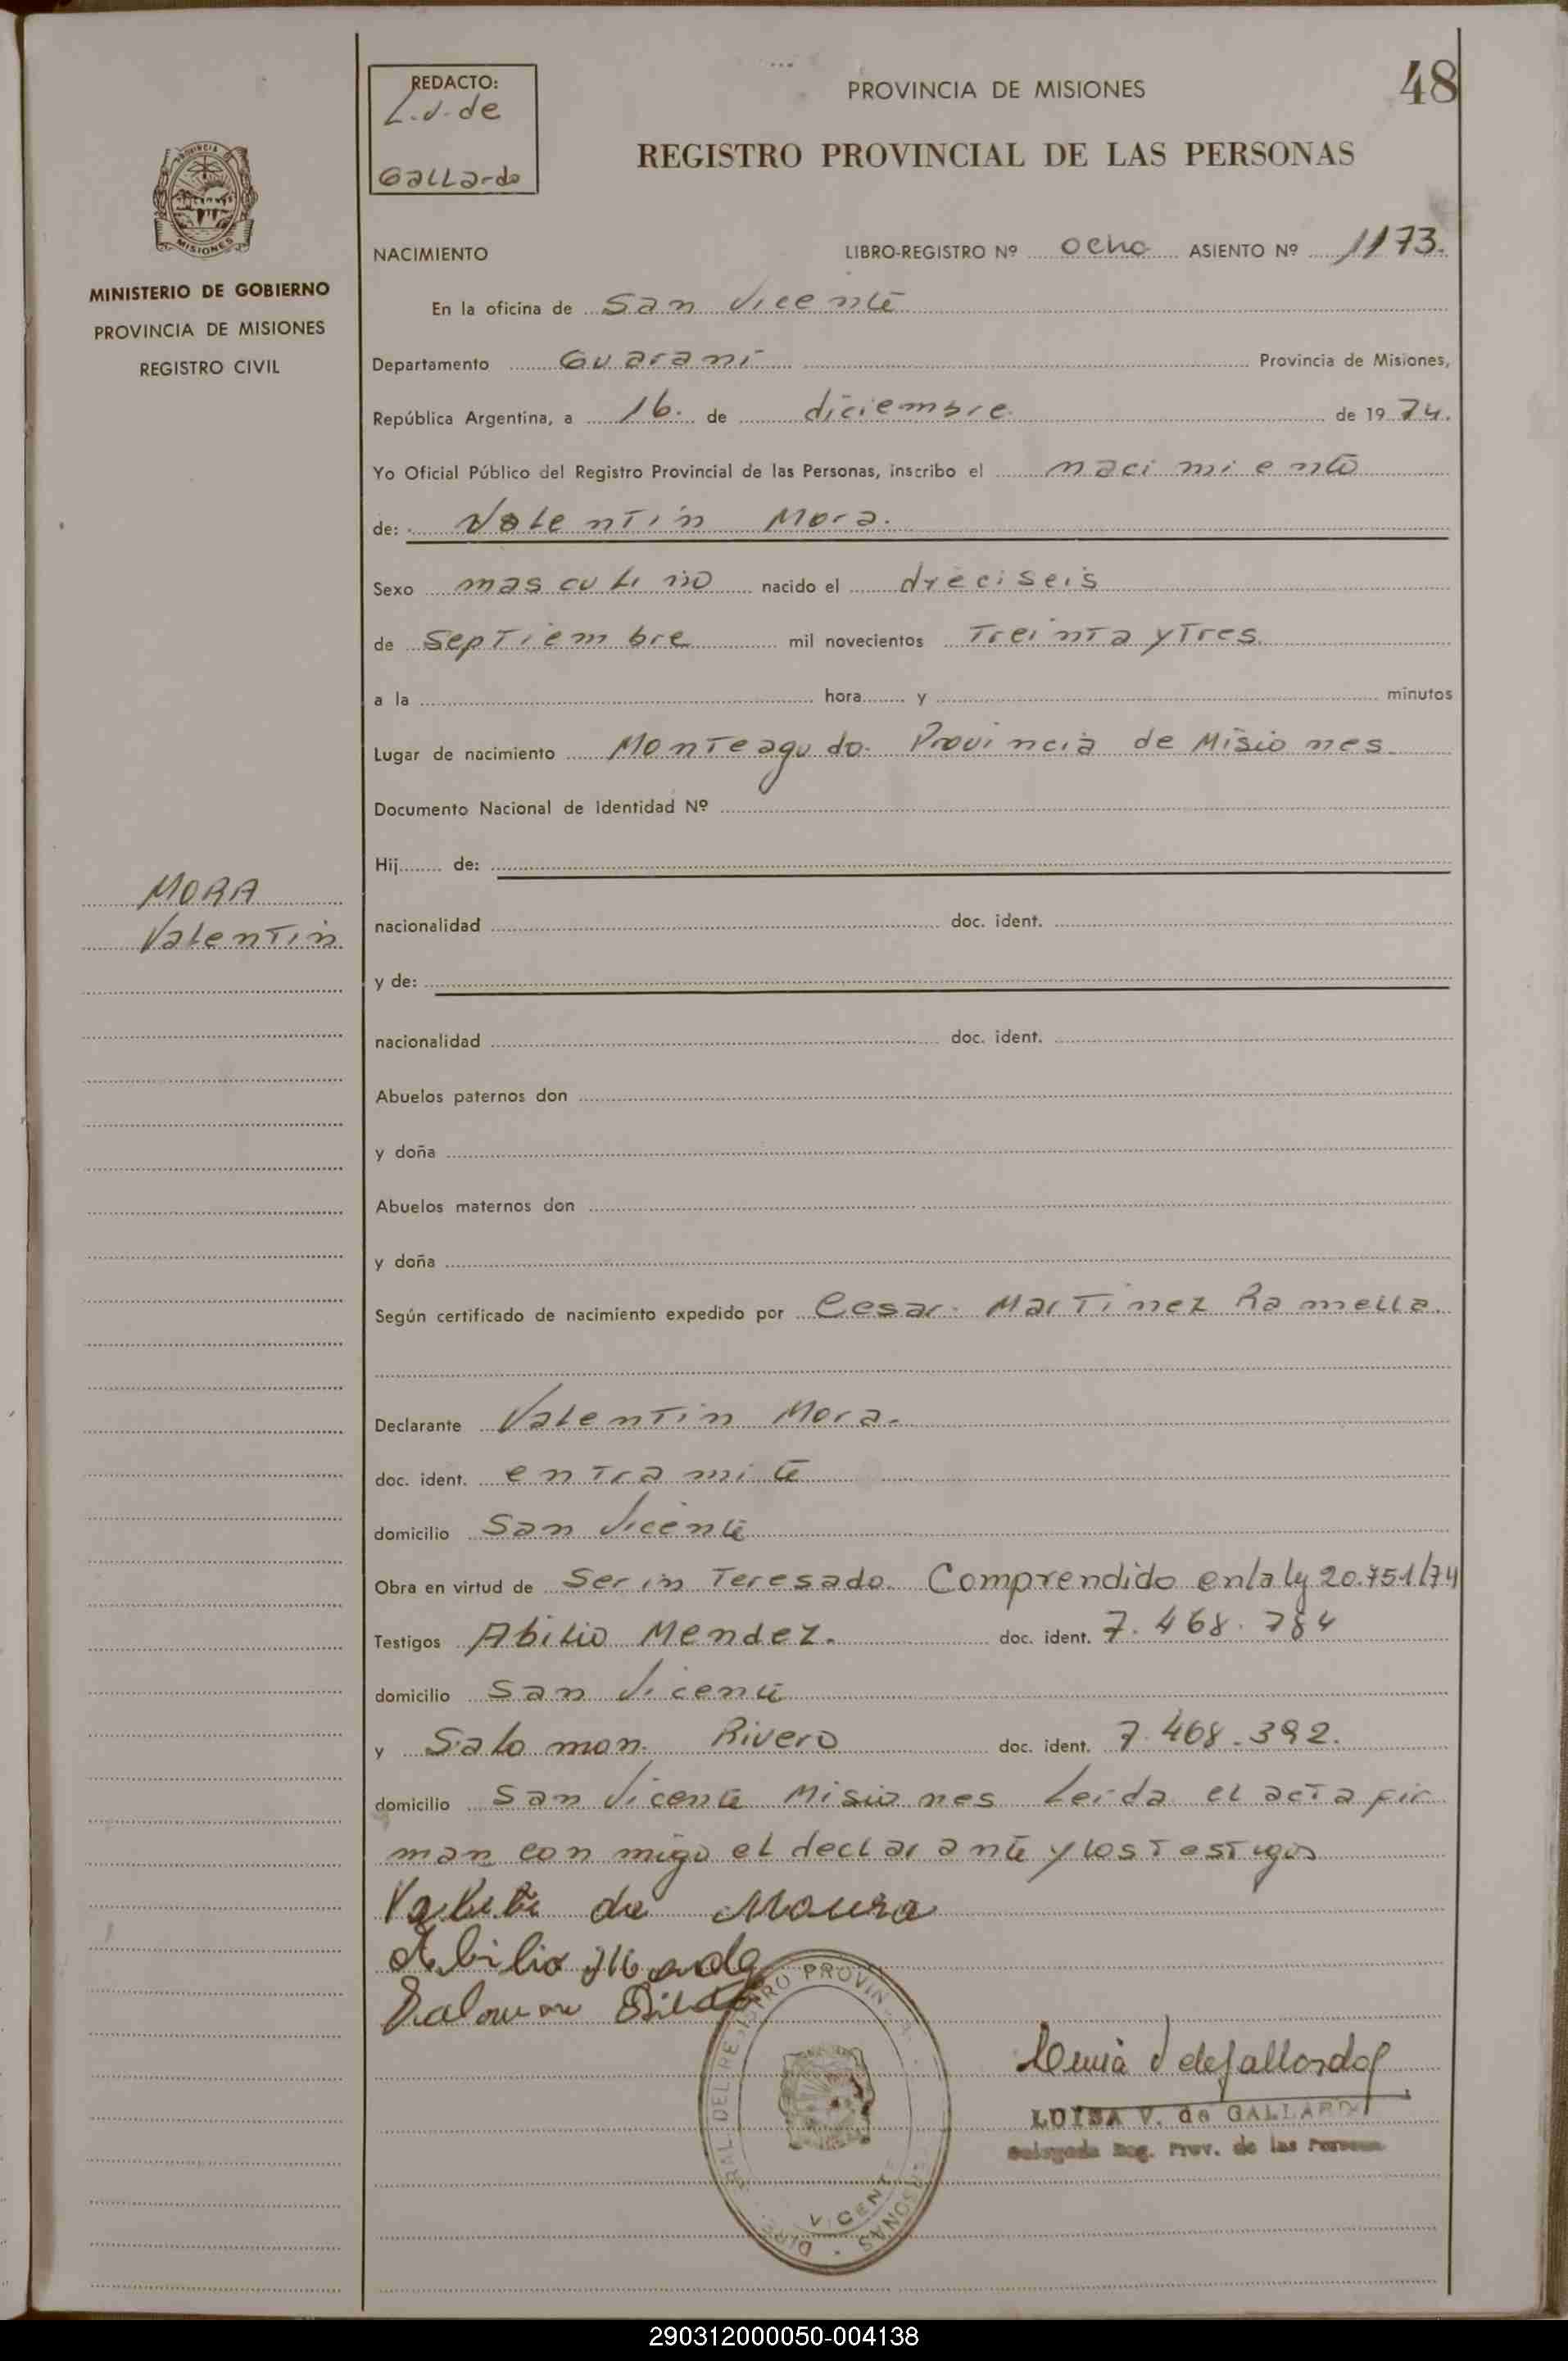 48
REDACTO:
L.V. de
Gallardo
PROVINCIA DE MISIONES
REGISTRO PROVINCIAL DE LAS PERSONAS
PROVINCIA
MISIONES
MINISTERIO DE GOBIERNO
PROVINCIA DE MISIONES
REGISTRO CIVIL
NACIMIENTO LIBRO-REGISTRO Nº ocho ASIENTO Nº 1173.
En la oficina de San Vicente
Departamento Guaraní Provincia de Misiones,
República Argentina, a 16. de diciembre de 1974.
Yo Oficial Público del Registro Provincial de las Personas, inscribo el nacimiento
de: Valentin Mora.
Sexo masculino nacido el dieciseis
de Septiembre mil novecientos Treinta y Tres
a la hora y minutos
Lugar de nacimiento Monteagudo. Provincia de Misiones.
Documento Nacional de Identidad Nº
Hij de:
MORA
Valentin
nacionalidad doc. ident.
y de:
nacionalidad doc. ident.
Abuelos paternos don
y doña
Abuelos maternos don
y doña
Según certificado de nacimiento expedido por Cesar Martinez Ramella.
Declarante Valentin Mora.
doc. ident. en tramite
domicilio San Vicente
Obra en virtud de Ser in Teresado. Comprendido en la ly 20.751/74
Testigos Abilio Mendez. doc. ident. 7.468.784
domicilio San Vicente
y Salomon Rivero doc. ident. 7.468.392.
domicilio San Vicente Misiones Leida el acta fir
man con migo el declarante y los Testigos
de Moura
Abilio
Salomon
LUISA V. de GALLARDO
Delegada Reg. Prov. de las Personas
290312000050-004138